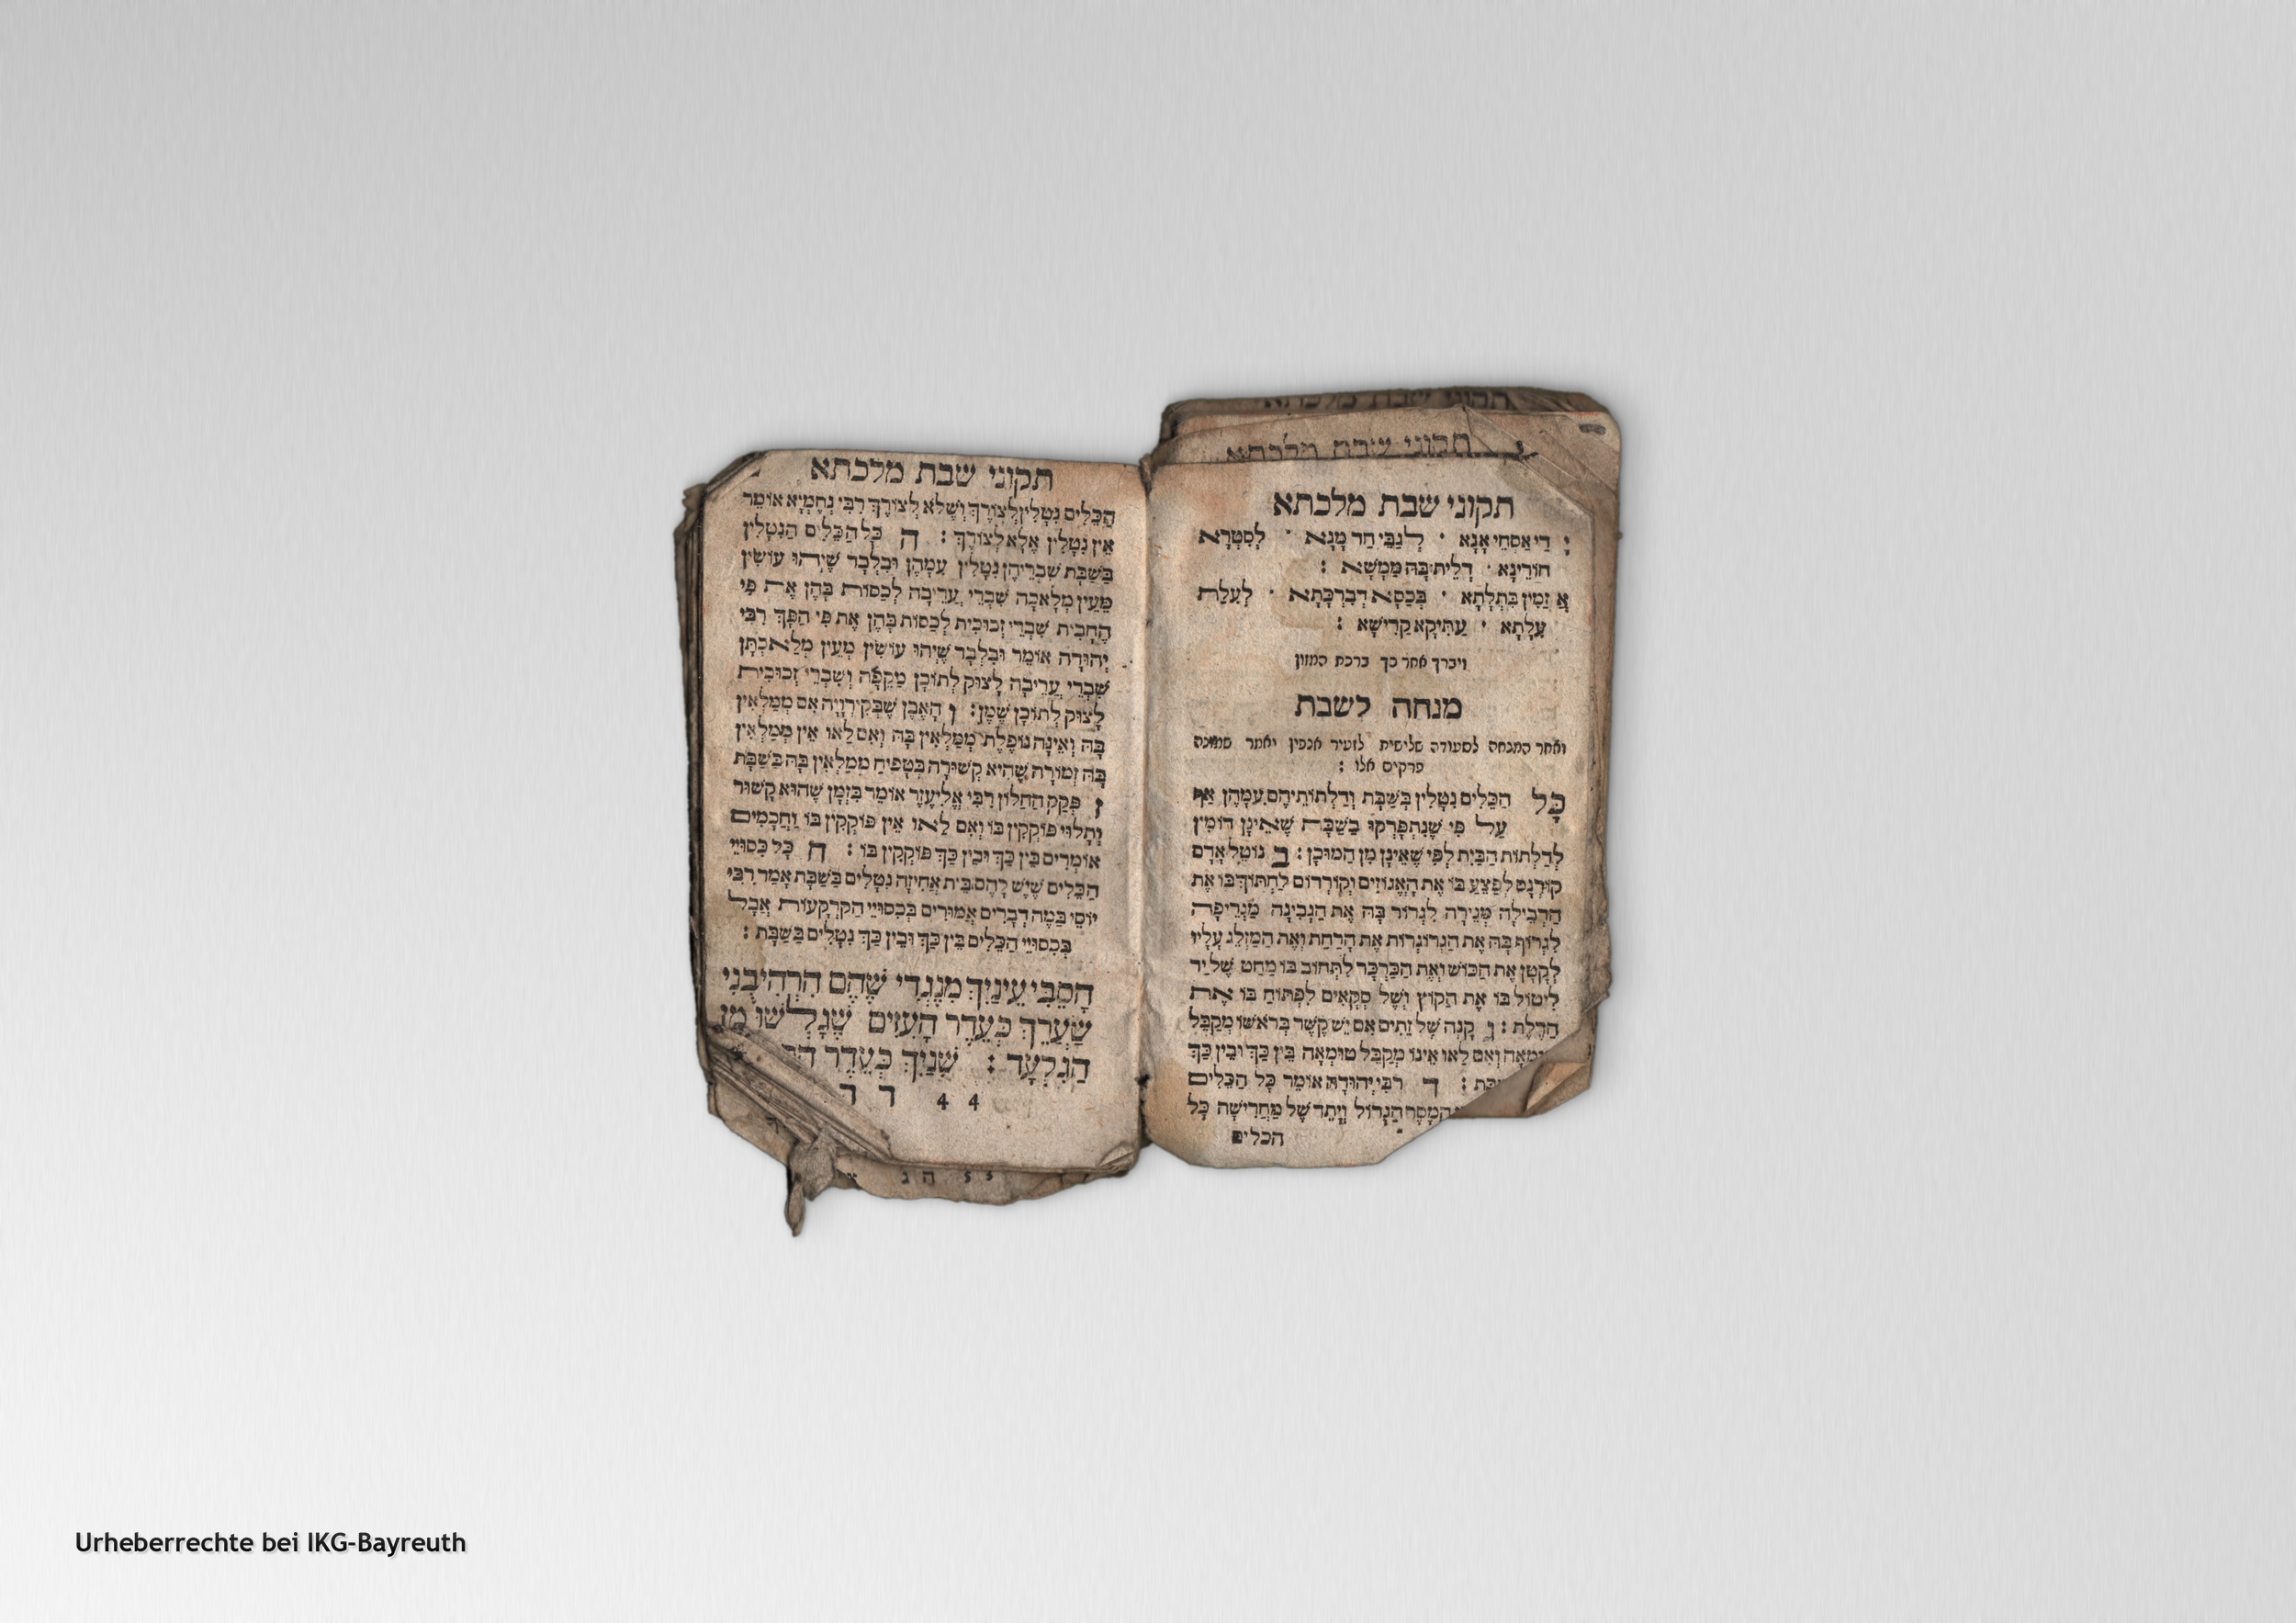 תקוני שבת מלכתא
תקוני שבת מלכתא
תקוני שבת מלכתא
י דִי אַסְחֵי אֲנָא · לְגַבֵּי חַד מָנָא · לְסִטְרָא
חוֹרֵינָא · דְלֵית בָּהּ מַמָּשָׁא :
אֲ זַמִין בִּתְלָתָא · בְּכַסָא דְבִרְכָּתָא · לְעִלַת
עִלָתָא · עַתִּיקָא קַדִישָׁא :
ויברך אחר כך ברכת המזון
מנחה לשבת
ואחר המנחה לסעודה שלישית לזעיר אנפין יאמר שמונה
פרקים אלו :
כָּל הַכֵּלִים נִטָלִין בְּשַׁבָּת וְדַלְתוֹתֵיהֶם עִמָהֶן אַף
עַל פִּי שֶׁנִתְפָּרְקוּ בַשַׁבָּת שֶׁאֵינָן דוֹמִין
לְדַלְתוֹת הַבַּיִת לְפִי שֶׁאֵינָן מִן הַמוּכָן : ב נוֹטֵל אָדָם
קוּרְנָס לְפַצֵעַ בּוֹ אֶת הָאֱגוֹזִים וְקוּרְדוֹם לַחְתּוֹךְ בּוֹ אֶת
הַדְבֵילָה מְגֵירָה לִגְרוֹר בָּהּ אֶת הַגְבִינָה מַגְרֵיפָה
לִגְרוֹף בָּהּ אֶת הַגְרוֹגְרוֹת אֶת הָרַחַת וְאֶת הַמַזְלֵג עָלָיו
לְקָטָן אֶת הַכּוֹשׁ וְאֶת הַכַּרְכָּר לִתְחוֹב בּוֹ מַחַט שֶׁל יַד
לִיטוֹל בּוֹ אֶת הַקוֹץ וְשֶׁל סַקָאִים לִפְתּוֹחַ בּוֹ אֶת
הַדֶלֶת : ג קָנֶה שֶׁל זֵתִים אִם יֵשׁ קֶשֶׁר בְּרֹאשׁוֹ מְקַבֵּל
טוּמְאָה וְאִם לַאו אֵינוֹ מְקַבֵּל טוּמְאָה בֵּין כַּךְ וּבֵין כַּךְ
בַּת : ד רַבִּי יְהוּדָה אוֹמֵר כָּל הַכֵּלִים
הַמַסָר הַגָדוֹל וְיָתֵד שֶׁל מַחֲרֵישָׁה כָּל
הכלים
תקוני שבת מלכתא
הַכֵּלִים נִטָלִין לְצוֹרֶךְ וְשֶׁלֹא לְצוֹרֶךְ רַבִּי נְחֶמְיָא אוֹמֵר
אֵין נִטָלִין אֶלָא לְצוֹרֶךְ : ה כָּל הַכֵּלִים הַנִטָלִין
בַּשַׁבָּת שִׁבְרֵיהֶן נִטָלִין עִמָהֶן וּבִלְבַד שֶׁיְהוּ עוֹשִׂין
מֵעֵין מְלָאכָה שִׁבְרֵי עֲרֵיבָה לְכַסוֹת בָּהֶן אֶת פִּי
הֶחָבִית שִׁבְרֵי זְכוּכִית לְכַסוֹת בָּהֶן אֶת פִּי הַפַּךְ רַבִּי
יְהוּדָה אוֹמֵר וּבִלְבַד שֶׁיְהוּ עוֹשִׂין מֵעֵין מְלַאכְתָּן
שִׁבְרֵי עֲרֵיבָה לָצוּק לְתוֹכָן מִקְפָּה וְשִׁבְרֵי זְכוּכִית
לָצוּק לְתוֹכָן שֶׁמֶן : ו הָאֶבֶן שֶׁבְּקִירוּיָה אִם מְמַלְאִין
בָּהּ וְאֵינָהּ נוֹפֶלֶת מְמַלְאִין בָּהּ וְאִם לַאו אֵין מְמַלְאִין
בָּהּ זְמוֹרָה שֶׁהִיא קְשׁוּרָה בְּטָפִיחַ מְמַלְאִין בָּהּ בַּשַׁבָּת
ז פְּקַק הַחַלוֹן רַבִּי אֱלִיעֶזֶר אוֹמֵר בִּזְמָן שֶׁהוּא קָשׁוּר
וְתָלוּי פּוֹקְקִין בּוֹ וְאִם לַאו אֵין פּוֹקְקִין בּוֹ וַחֲכָמִים
אוֹמְרִים בֵּין כַּךְ וּבֵין כַּךְ פּוֹקְקִין בּוֹ : ח כָּל כִּסוּיֵי
הַכֵּלִים שֶׁיֵשׁ לָהֶם בֵּית אֲחִיזָה נִטָלִים בַּשַׁבָּת אָמַר רַבִּי
יוֹסֵי בַּמֶה דְבָרִים אֲמוּרִים בְּכִסוּיֵי הַקַרְקָעוֹת אֲבָל
בְּכִסוּיֵי הַכֵּלִים בֵּין כַּךְ וּבֵין כַּךְ נִטָלִים בַּשַׁבָּת :
הָסֵבִּי עֵינַיִךְ מִנֶגְדִי שֶׁהֵם הִרְהִיבֻנִי
שַׂעֲרֵךְ כְּעֵדֶר הָעִזִים שֶׁגָלְשׁוּ מִן
הַגִלְעָד : שִׁנַיִךְ כְּעֵדֶר
44 ד ד
55 ה ג
Urheberrechte bei IKG-Bayreuth